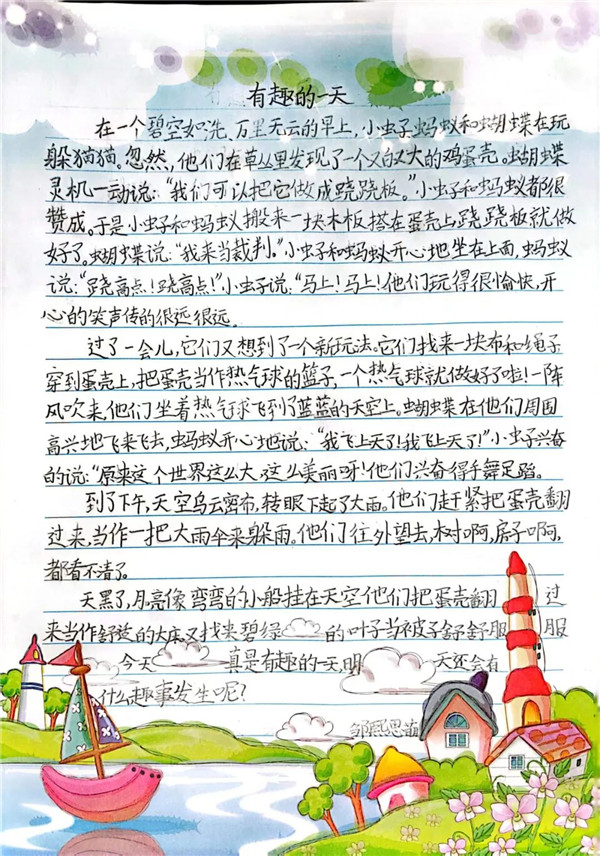 有趣的一天
在一个碧空如洗、万里无云的早上,小虫子蚂蚁和蝴蝶在玩
躲猫猫。忽然,他们在草丛里发现了一个又白又大的鸡蛋壳。蝴蝶
灵机一动说:“我们可以把它做成跷跷板。”小虫子和蚂蚁都很
赞成。于是小虫子和蚂蚁搬来一块木板搭在蛋壳上跷跷板就做
好了。蝴蝶说:“我来当裁判。”小虫子和蚂蚁开心地坐在上面,蚂蚁
说:“跷高点!跷高点!”小虫子说:“马上!马上!他们玩得很愉快,开
心的笑声传的很远很远.
过了一会儿,它们又想到了一个新玩法。它们找来一块布和绳子
穿到蛋壳上,把蛋壳当作热气球的篮子,一个热气球就做好了啦!一阵
风吹来,他们坐着热气球飞到了蓝蓝的天空上。蝴蝶在他们周围
高兴地飞来飞去,蚂蚁开心地说:“我飞上天了!我飞上天了!”小虫子兴奋
的说:“原来这个世界这么大,这么美丽呀!他们兴奋得手舞足蹈。
到了下午,天空乌云密布,转眼下起了大雨。他们赶紧把蛋壳翻
过来,当作一把大雨伞来躲雨。他们往外望去,树啊,房子啊,
都看不清了。
天黑了,月亮像弯弯的小船挂在天空他们把蛋壳翻过
来当作舒适的大床又找来碧绿的叶子当被子舒舒服服
今天真是有趣的一天明天还会有
什么趣事发生呢?